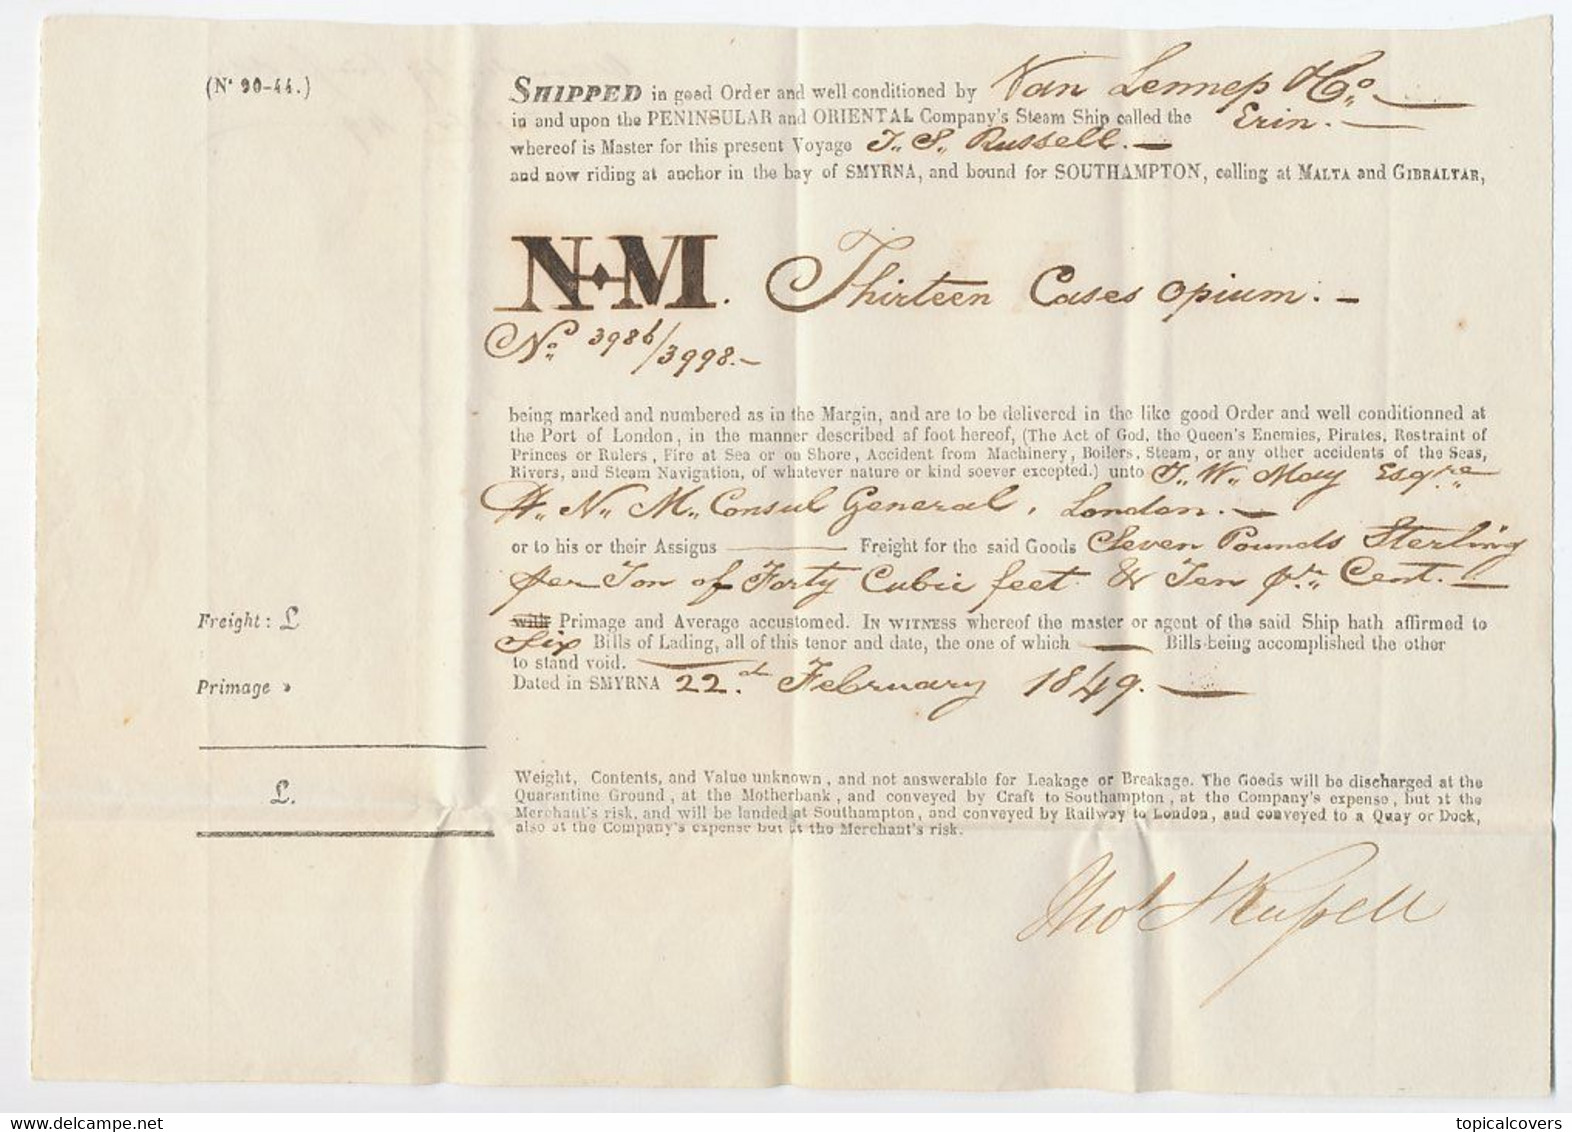 (N° 90-44.)
SHIPPED in good Order and well conditioned by Van Lennep & Co.
in and upon the PENINSULAR and ORIENTAL Company's Steam Ship called the Erin.
whereof is Master for this present Voyage T. S. Russell.
and now riding at anchor in the bay of SMYRNA, and bound for SOUTHAMPTON, calling at MALTA and GIBRALTAR,
N M. Thirteen Cases Opium.
No. 3986/3998.
being marked and numbered as in the Margin, and are to be delivered in the like good Order and well conditionned at
the Port of London, in the manner described af foot hereof, (The Act of God, the Queen's Enemies, Pirates, Restraint of
Princes or Rulers, Fire at Sea or on Shore, Accident from Machinery, Boilers, Steam, or any other accidents of the Seas,
Rivers, and Steam Navigation, of whatever nature or kind soever excepted.) unto J. W. May Esqre
H. N. M. Consul General, London.
or to his or their Assigns Freight for the said Goods Seven Pounds Sterling
per Ton of Forty Cubic feet & Ten pr. Cent.
Freight : £ with Primage and Average accustomed. IN WITNESS whereof the master or agent of the said Ship hath affirmed to
Six Bills of Lading, all of this tenor and date, the one of which Bills being accomplished the other
to stand void.
Primage » Dated in SMYRNA 22d February 1849.
£.
Weight, Contents, and Value unknown, and not answerable for Leakage or Breakage. The Goods will be discharged at the
Quarantine Ground, at the Motherbank, and conveyed by Craft to Southampton, at the Company's expense, but at the
Merchant's risk, and will be landed at Southampton, and conveyed by Railway to London, and conveyed to a Quay or Dock,
also at the Company's expense but at the Merchant's risk.
Thos S Russell
topicalcovers